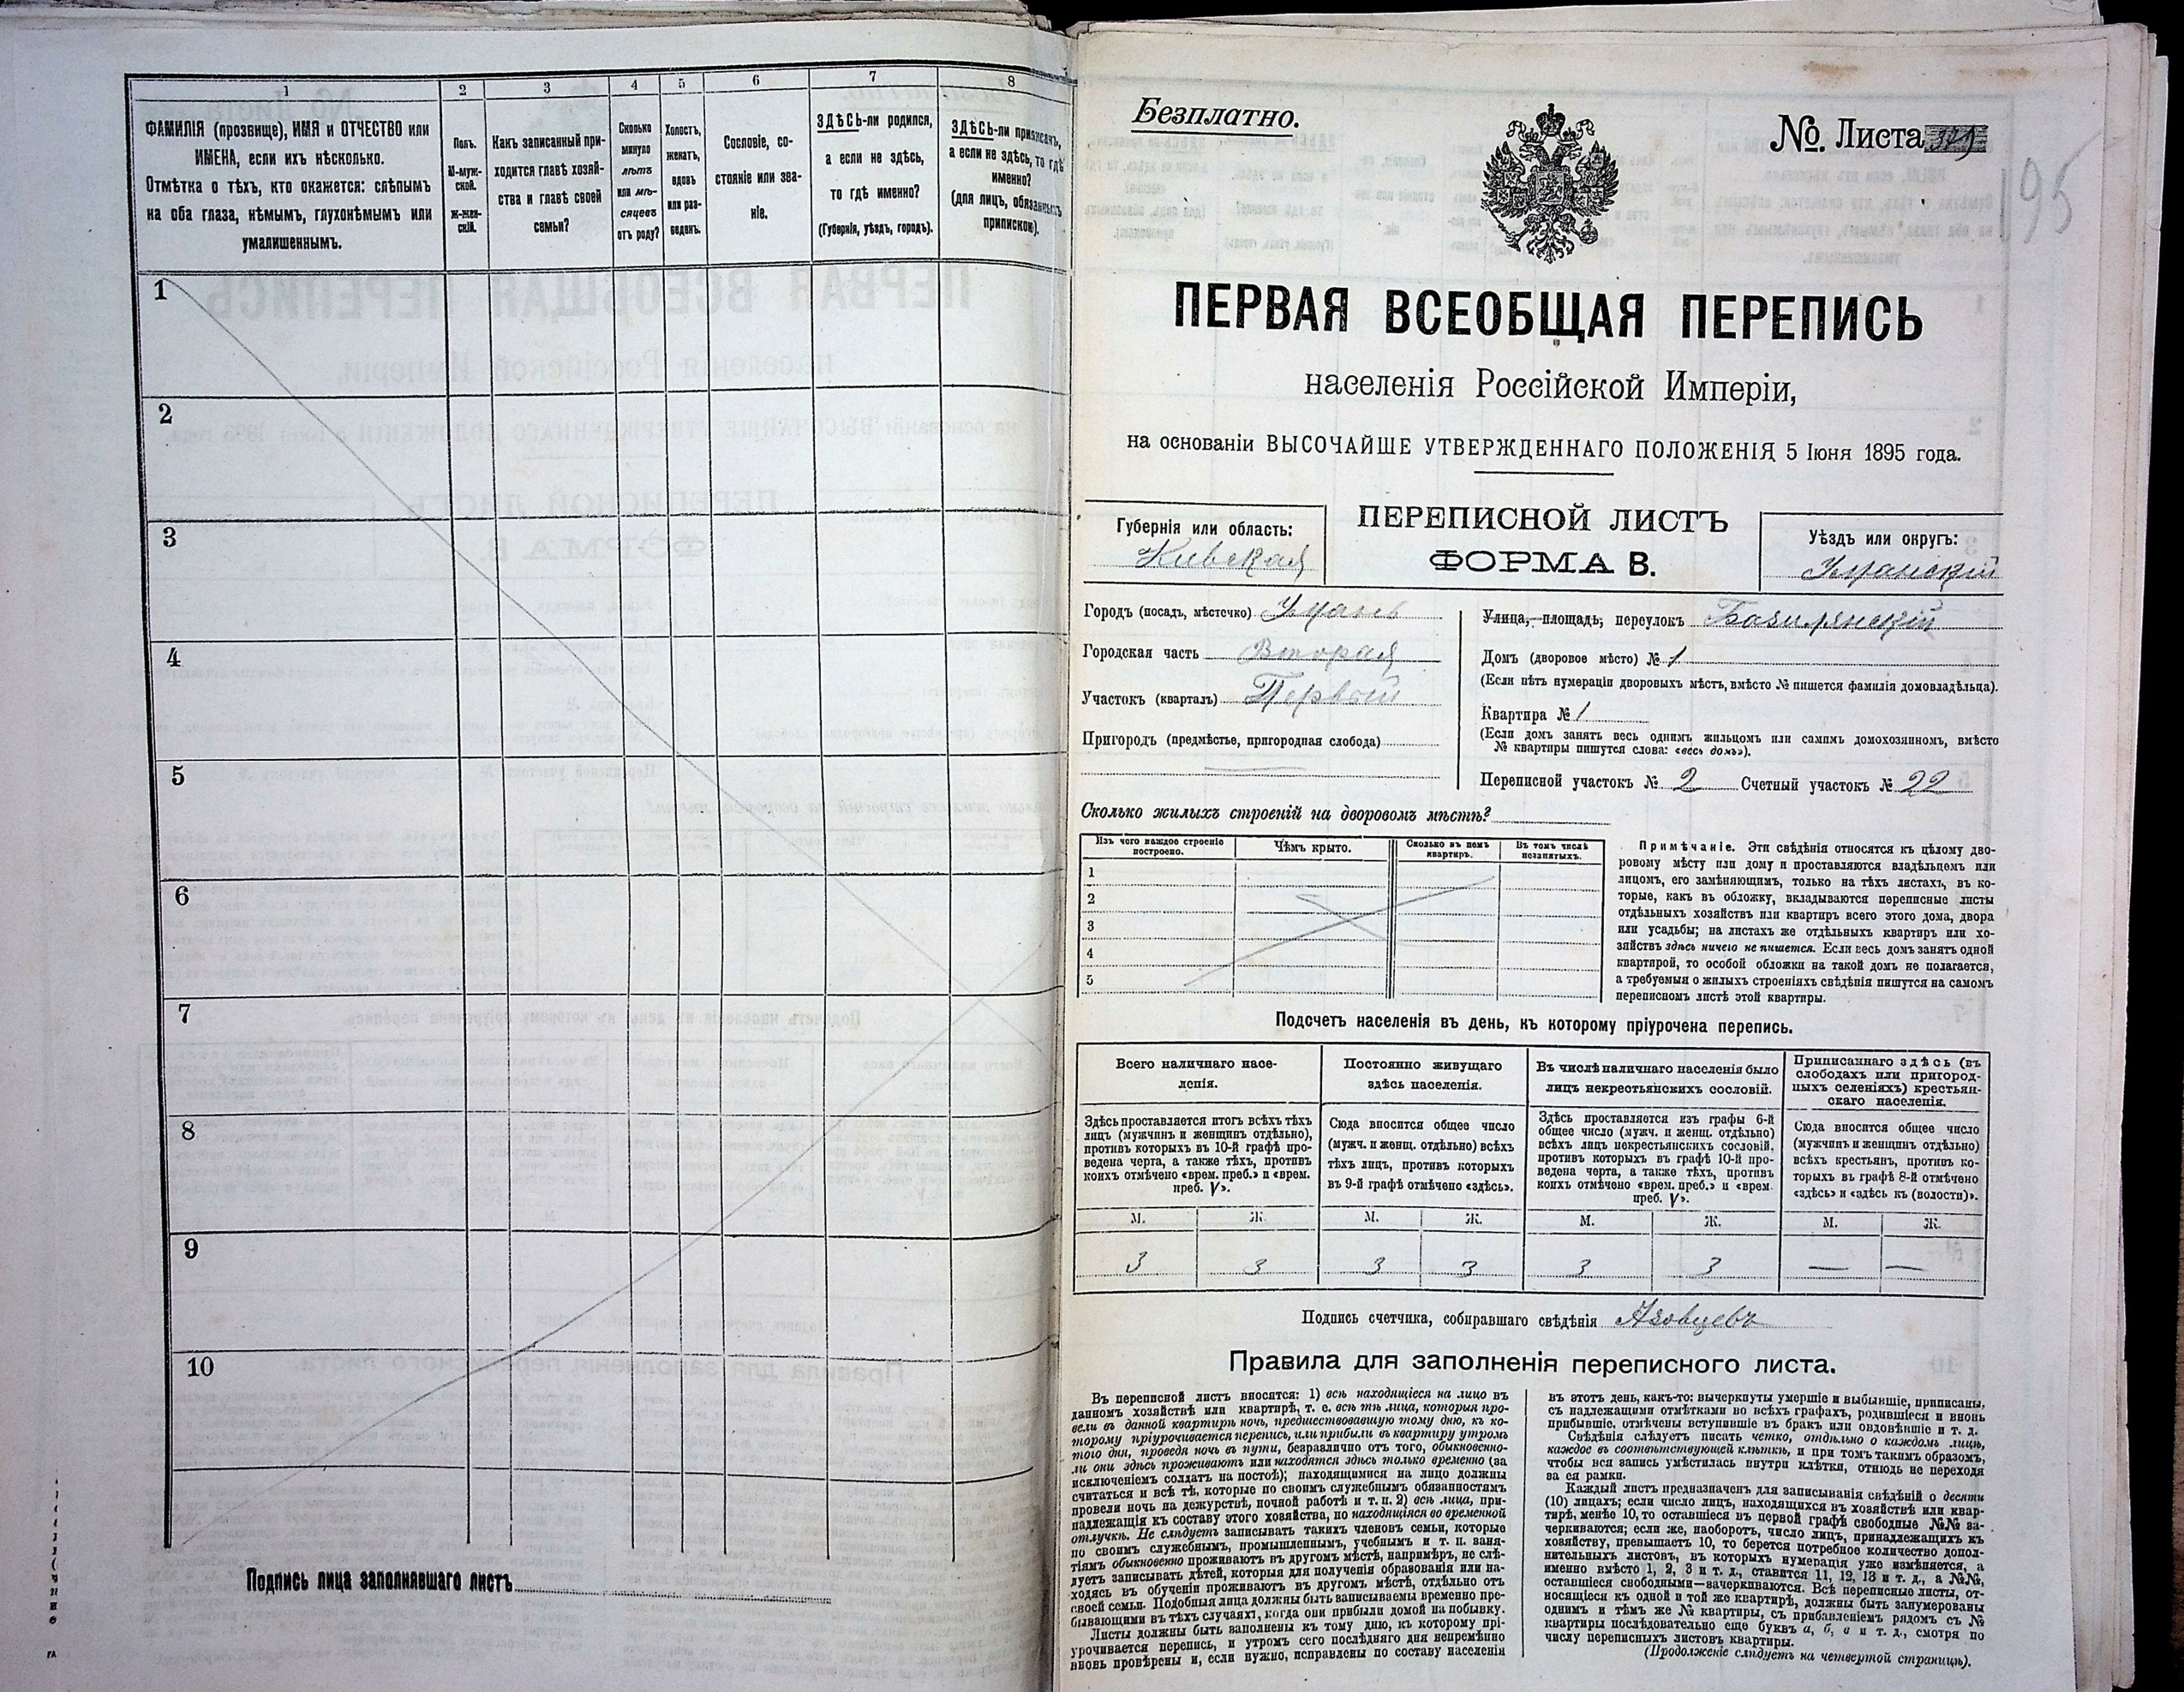 1
2
3
4
5
6
7
8
ФАМИЛІЯ (прозвище), ИМЯ и ОТЧЕСТВО или
ИМЕНА, если ихъ нѣсколько.
Отмѣтка о тѣхъ, кто окажется: слѣпымъ
на оба глаза, нѣмымъ, глухонѣмымъ или
умалишеннымъ.
Полъ.
М-муж-
ской.
Ж-жен-
скій.
Какъ записанный при-
ходится главѣ хозяй-
ства и главѣ своей
семьи?
Сколько
минуло
лѣтъ
или мѣ-
сяцевъ
отъ роду?
Холостъ,
женатъ,
вдовъ
или раз-
веденъ.
Сословіе, со-
стояніе или зва-
ніе.
ЗДѢСЬ-ли родился,
а если не здѣсь,
то гдѣ именно?
(Губернія, уѣздъ, городъ).
ЗДѢСЬ-ли приписанъ,
а если не здѣсь, то гдѣ
именно?
(для лицъ, обязанныхъ
припискою).
1
2
3
4
5
6
7
8
9
10
Подпись лица заполнявшаго листъ
Безплатно.
№ Листа
195
ПЕРВАЯ ВСЕОБЩАЯ ПЕРЕПИСЬ
населенія Россійской Имперіи,
на основаніи ВЫСОЧАЙШЕ УТВЕРЖДЕННАГО ПОЛОЖЕНІЯ 5 Іюня 1895 года.
Губернія или область:
Кіевская
ПЕРЕПИСНОЙ ЛИСТЪ
ФОРМА В.
Уѣздъ или округъ:
Уманскій
Городъ (посадъ, мѣстечко) Умань
Городская часть Вторая
Участокъ (кварталъ) Первый
Пригородъ (предмѣстье, пригородная слобода)
Улица, площадь, переулокъ Базилянскій
Домъ (дворовое мѣсто) № 1
(Если нѣтъ нумераціи дворовыхъ мѣстъ, вмѣсто № пишется фамилія домовладѣльца).
Квартира № 1
(Если домъ занятъ весь однимъ жильцомъ или самимъ домохозяиномъ, вмѣсто
№ квартиры пишутся слова: «весь домъ»).
Переписной участокъ № 2 Счетный участокъ № 22
Сколько жилыхъ строеній на дворовомъ мѣстѣ?
Изъ чего каждое строеніе
построено.
Чѣмъ крыто.
Сколько въ немъ
квартиръ.
Въ томъ числѣ
незанятыхъ.
1
2
3
4
5
Примѣчаніе. Эти свѣдѣнія относятся къ цѣлому дво-
ровому мѣсту или дому и проставляются владѣльцемъ или
лицомъ, его замѣняющимъ, только на тѣхъ листахъ, въ ко-
торые, какъ въ обложку, вкладываются переписные листы
отдѣльныхъ хозяйствъ или квартиръ всего этого дома, двора
или усадьбы; на листахъ же отдѣльныхъ квартиръ или хо-
зяйствъ здѣсь ничего не пишется. Если весь домъ занятъ одной
квартирой, то особой обложки на такой домъ не полагается,
а требуемыя о жилыхъ строеніяхъ свѣдѣнія пишутся на самомъ
переписномъ листѣ этой квартиры.
Подсчетъ населенія въ день, къ которому пріурочена перепись.
Всего наличнаго насе-
ленія.
Постоянно живущаго
здѣсь населенія.
Въ числѣ наличнаго населенія было
лицъ некрестьянскихъ сословій.
Приписаннаго здѣсь (въ
слободахъ или пригород-
ныхъ селеніяхъ) крестьян-
скаго населенія.
Здѣсь проставляется итогъ всѣхъ тѣхъ
лицъ (мужчинъ и женщинъ отдѣльно),
противъ которыхъ въ 10-й графѣ про-
ведена черта, а также тѣхъ, противъ
коихъ отмѣчено «врем. преб.» и «врем.
преб. V».
Сюда вносится общее число
(мужч. и женщ. отдѣльно) всѣхъ
тѣхъ лицъ, противъ которыхъ
въ 9-й графѣ отмѣчено «здѣсь».
Здѣсь проставляется изъ графы 6-й
общее число (мужч. и женщ. отдѣльно)
всѣхъ лицъ некрестьянскихъ сословій,
противъ которыхъ въ графѣ 10-й про-
ведена черта, а также тѣхъ, противъ
коихъ отмѣчено «врем. преб.» и «врем.
преб. V».
Сюда вносится общее число
(мужчинъ и женщинъ отдѣльно)
всѣхъ крестьянъ, противъ ко-
торыхъ въ графѣ 8-й отмѣчено
«здѣсь» и «здѣсь къ (волости)».
М. Ж. М. Ж. М. Ж. М. Ж.
3 3 3 3 3 3 — —
Подпись счетчика, собиравшаго свѣдѣнія Азовцевъ
Правила для заполненія переписного листа.
Въ переписной листъ вносятся: 1) всѣ находящіеся на лицо въ
данномъ хозяйствѣ или квартирѣ, т. е. всѣ тѣ лица, которыя про-
вели въ данной квартирѣ ночь, предшествовавшую тому дню, къ ко-
торому пріурочивается перепись, или прибыли въ квартиру утромъ
того дня, проведя ночь въ пути, безразлично отъ того, обыкновенно-
ли они здѣсь проживаютъ или находятся здѣсь только временно (за
исключеніемъ солдатъ на постоѣ); находящимися на лицо должны
считаться и всѣ тѣ, которые по своимъ служебнымъ обязанностямъ
провели ночь на дежурствѣ, ночной работѣ и т. п. 2) всѣ лица, при-
надлежащія къ составу этого хозяйства, но находящіяся во временной
отлучкѣ. Не слѣдуетъ записывать такихъ членовъ семьи, которые
по своимъ служебнымъ, промышленнымъ, учебнымъ и т. п. заня-
тіямъ обыкновенно проживаютъ въ другомъ мѣстѣ, напримѣръ, не слѣ-
дуетъ записывать дѣтей, которыя для полученія образованія или на-
ходясь въ обученіи проживаютъ въ другомъ мѣстѣ, отдѣльно отъ
своей семьи. Подобныя лица должны быть записываемы временно пре-
бывающими въ тѣхъ случаяхъ, когда они прибыли домой на побывку.
Листы должны быть заполнены къ тому дню, къ которому прі-
урочивается перепись, и утромъ сего послѣдняго дня непремѣнно
вновь провѣрены и, если нужно, исправлены по составу населенія
въ этотъ день, какъ-то: вычеркнуты умершіе и выбывшіе, приписаны,
съ надлежащими отмѣтками во всѣхъ графахъ, родившіеся и вновь
прибывшіе, отмѣчены вступившіе въ бракъ или овдовѣвшіе и т. д.
Свѣдѣнія слѣдуетъ писать четко, отдѣльно о каждомъ лицѣ,
каждое въ соотвѣтствующей клѣткѣ, и при томъ такимъ образомъ,
чтобы вся запись умѣстилась внутри клѣтки, отнюдь не переходя
за ея рамки.
Каждый листъ предназначенъ для записыванія свѣдѣній о десяти
(10) лицахъ; если число лицъ, находящихся въ хозяйствѣ или квар-
тирѣ, менѣе 10, то оставшіеся въ первой графѣ свободные №№ за-
черкиваются; если же, наоборотъ, число лицъ, принадлежащихъ къ
хозяйству, превышаетъ 10, то берется потребное количество допол-
нительныхъ листовъ, въ которыхъ нумерація уже измѣняется, а
именно вмѣсто 1, 2, 3 и т. д., ставится 11, 12, 13 и т. д., а №№,
оставшіеся свободными—зачеркиваются. Всѣ переписные листы, от-
носящіеся къ одной и той же квартирѣ, должны быть занумерованы
однимъ и тѣмъ же № квартиры, съ прибавленіемъ рядомъ съ №
квартиры послѣдовательно еще буквъ а, б, в и т. д., смотря по
числу переписныхъ листовъ квартиры.
(Продолженіе слѣдуетъ на четвертой страницѣ).